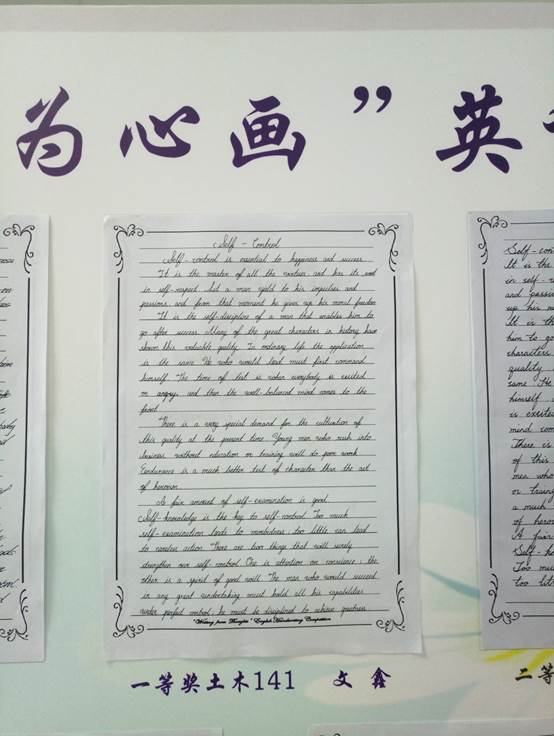 为心画”英
Self - Control
Self-control is essential to happiness and success.
It is the master of all the virtues and has its root
in self-respect. Let a man yield to his impulses and
passions, and from that moment he gives up his moral freedom
It is the self-discipline of a man that enables him to
go after success. Many of the great characters in history have
shown this valuable quality. In ordinary life the application
is the same. He who would lead must first command
himself. The time of test is when everybody is excited
or angry, and then the well-balanced mind comes to the
front.
There is a very special demand for the cultivation of
this quality at the present time. Young men who rush into
business without education or training will do poor work
Endurance is a much better test of character than the act
of heroism.
A fair amount of self-examination is good.
Self-knowledge is the key to self-control. Too much
self-examination leads to morbidness; too little can lead
to careless action. There are two things that will surely
strengthen our self-control. One is attention on conscience; the
other is a spirit of good will. The man who would succeed
in any great undertaking must hold all his capabilities
under perfect control; he must be disciplined to achieve
"Writing from Thoughts" English Handwriting Competition
一等奖土木141 文鑫
Self - con
It is the
in self-
and passi
up his m
It is th
him to go
characters
quality
same He
himself
is excite
mind com
There is
of this
men who
or
a much
of hero
A fair
Self-
Too mu
too lit
二等